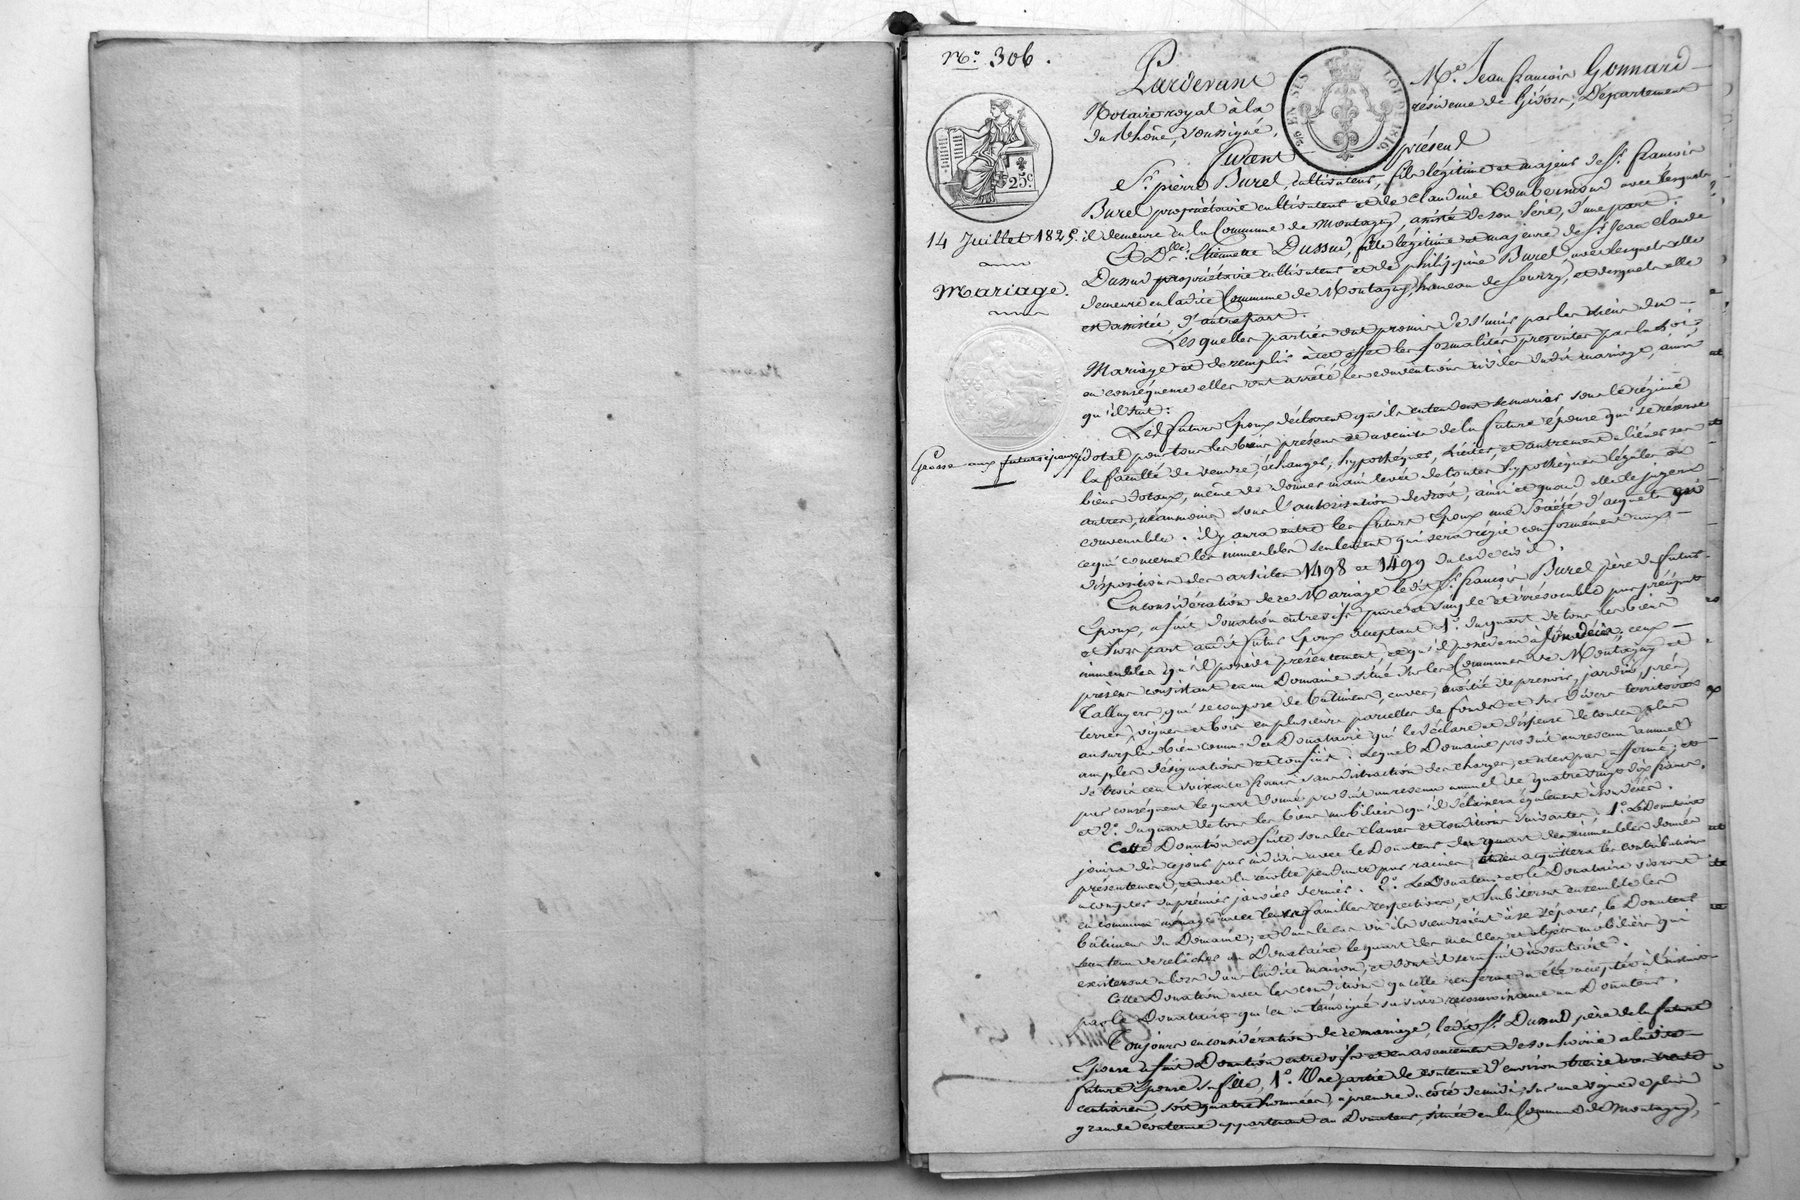 No. 306.
Pardevant Me. Jean françois Gonnard
Notaire royal à la résidence de Givors, Département
du Rhône, soussigné,
EN SUS LOI DE 1816
25c
Furent présens
Sr. pierre Burel, cultivateur, fils légitime et majeur de Sr. françois
Burel propriétaire cultivateur et de claudine Combermond avec lesquels
14 Juillet 1825.
il demeure en la Commune de Montagny, assisté de son père, d'une part;
Et Dlle. Etiennette Dussud, fille légitime et majeure de Sr. Jean claude
Dussud propriétaire cultivateur et de philippine Burel, avec lesquels elle
Mariage.
demeure en ladite Commune de Montagny, hameau de Sourzy, et desquels elle
est assistée, d'autre part.
Lesquelles parties ont promis de s'unir par les liens du
Mariage et de remplir à cet effet les formalités prescrites par la loi;
en conséquence elles ont arrêté les conventions civiles dudit mariage, ainsi
qu'il suit:
Les futurs Epoux déclarent qu'ils entendent se marier sous le régime
Grosse aux futurs époux
dotal pour tous les biens présens et avenir de la future épouse qui se réserve
la faculté de vendre, échanger, hypothéquer, liciter, et autrement aliéner ses
biens dotaux, même de donner main levée de toutes hypothèques légales ou
autres, néanmoins sous l'autorisation de droit, ainsi et quand elle le jugera
convenable. il y aura entre les futurs Epoux une Société d'acquets qui
ce qui concerne les immeubles seulement qui sera régie conformément aux
dispositions des articles 1498 et 1499 du code civil.
En considération de ce Mariage ledit Sr. françois Burel père du futur
Epoux, a fait donation entrevifs pure et simple et irrévocable par préciput
et hors part audit futur Epoux acceptant 1o. du quart de tous les biens
immeubles qu'il possède présentement, et qu'il possèdera à son décès; ceux
présens consistant en un Domaine situé sur les Communes de Montagny et
Taluyers qui se compose de bâtimens, cuves, moitié de pressoir, jardins, prés,
terres, vignes et bois en plusieurs parcelles de fonds et sur divers territoires
au surplus bien connu du Donataire qui le déclare et dispense de toute plus
ample désignation et confins. Lequel Domaine produit un revenu annuel
de trois cent soixante francs sans distraction des charges, et n'est pas affermé; et
par conséquent le quart donné produit un revenu annuel de quatre vingt dix francs.
et 2o. du quart de tous les biens mobiliers qu'il délaissera également à son décès.
Cette Donation est faite sous les clauses et conditions suivantes, 1o. Le Donataire
jouira dès ce jour par indivis avec le Donateur du quart des immeubles donnés
présentement, et avec la récolte pendante par racines, et en acquittera les contributions
à compter du premier janvier dernier. 2o. Le Donateur et le Donataire vivront
en commun ménage avec leurs familles respectives, et habiteront ensemble les
bâtimens du Domaine; et dans le cas où ils viendraient à se séparer, le Donateur
sera tenu de relâcher au Donataire le quart des meubles et objets mobiliers qui
existeront alors dans ladite maison, et dont il sera fait inventaire.
Cette Donation avec les conditions qu'elle renferme a été acceptée à l'instant
par le Donataire qui en a témoigné sa vive reconnaissance au Donateur.
Toujours en considération de ce mariage, ledit Sr. Dussud père de la future
Epouse a fait Donation entre vifs et en avancement de son hoirie à ladite
future Epouse sa fille, 1o. Une partie de contenue d'environ treize ares trente
centiares, soit quatre hommées, à prendre du côté de midi, sur une vigne de plus
grande contenue appartenant au Donateur, située en la Commune de Montagny,